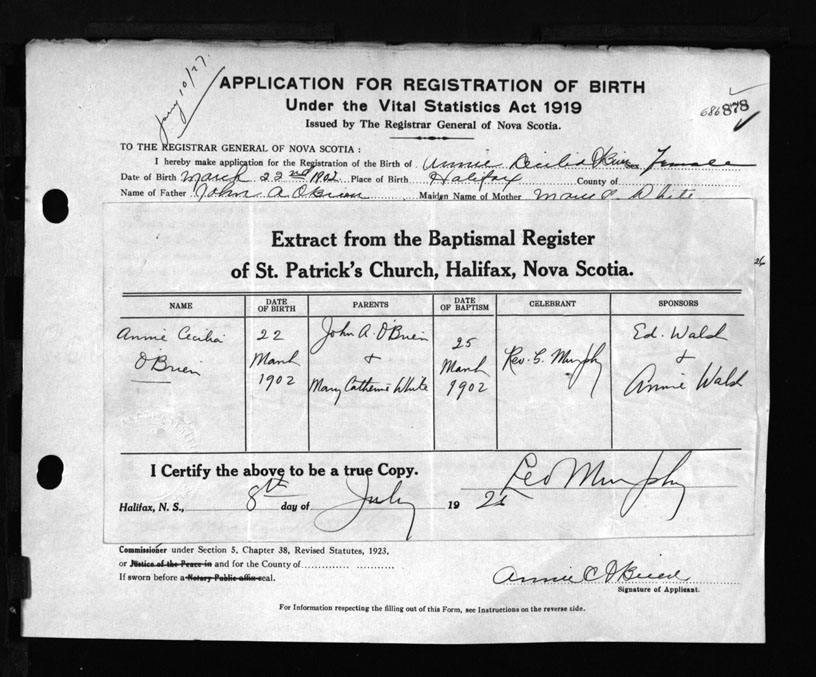 Jany 10/27.
APPLICATION FOR REGISTRATION OF BIRTH
Under the Vital Statistics Act 1919
Issued by The Registrar General of Nova Scotia.
686 878
TO THE REGISTRAR GENERAL OF NOVA SCOTIA :
I hereby make application for the Registration of the Birth of Annie Cecilia O'Brien Sex Female
Date of Birth March 22nd 1902 Place of Birth Halifax County of
Name of Father John A O'Brien Maiden Name of Mother Mary C. White
Extract from the Baptismal Register
of St. Patrick's Church, Halifax, Nova Scotia.
26
NAME DATE OF BIRTH PARENTS DATE OF BAPTISM CELEBRANT SPONSORS
Annie Cecilia 22 John A. O'Brien 25 Rev. G. Murphy Ed. Walsh
O'Brien March + March +
1902 Mary Catherine White 1902 Annie Walsh
I Certify the above to be a true Copy.
Leo Murphy
Halifax, N. S., 8th day of July 19
Commissioner under Section 5, Chapter 38, Revised Statutes, 1923,
or Justice of the Peace in and for the County of
If sworn before a Notary Public affix seal.
Annie C O'Brien
Signature of Applicant.
For Information respecting the filling out of this Form, see Instructions on the reverse side.